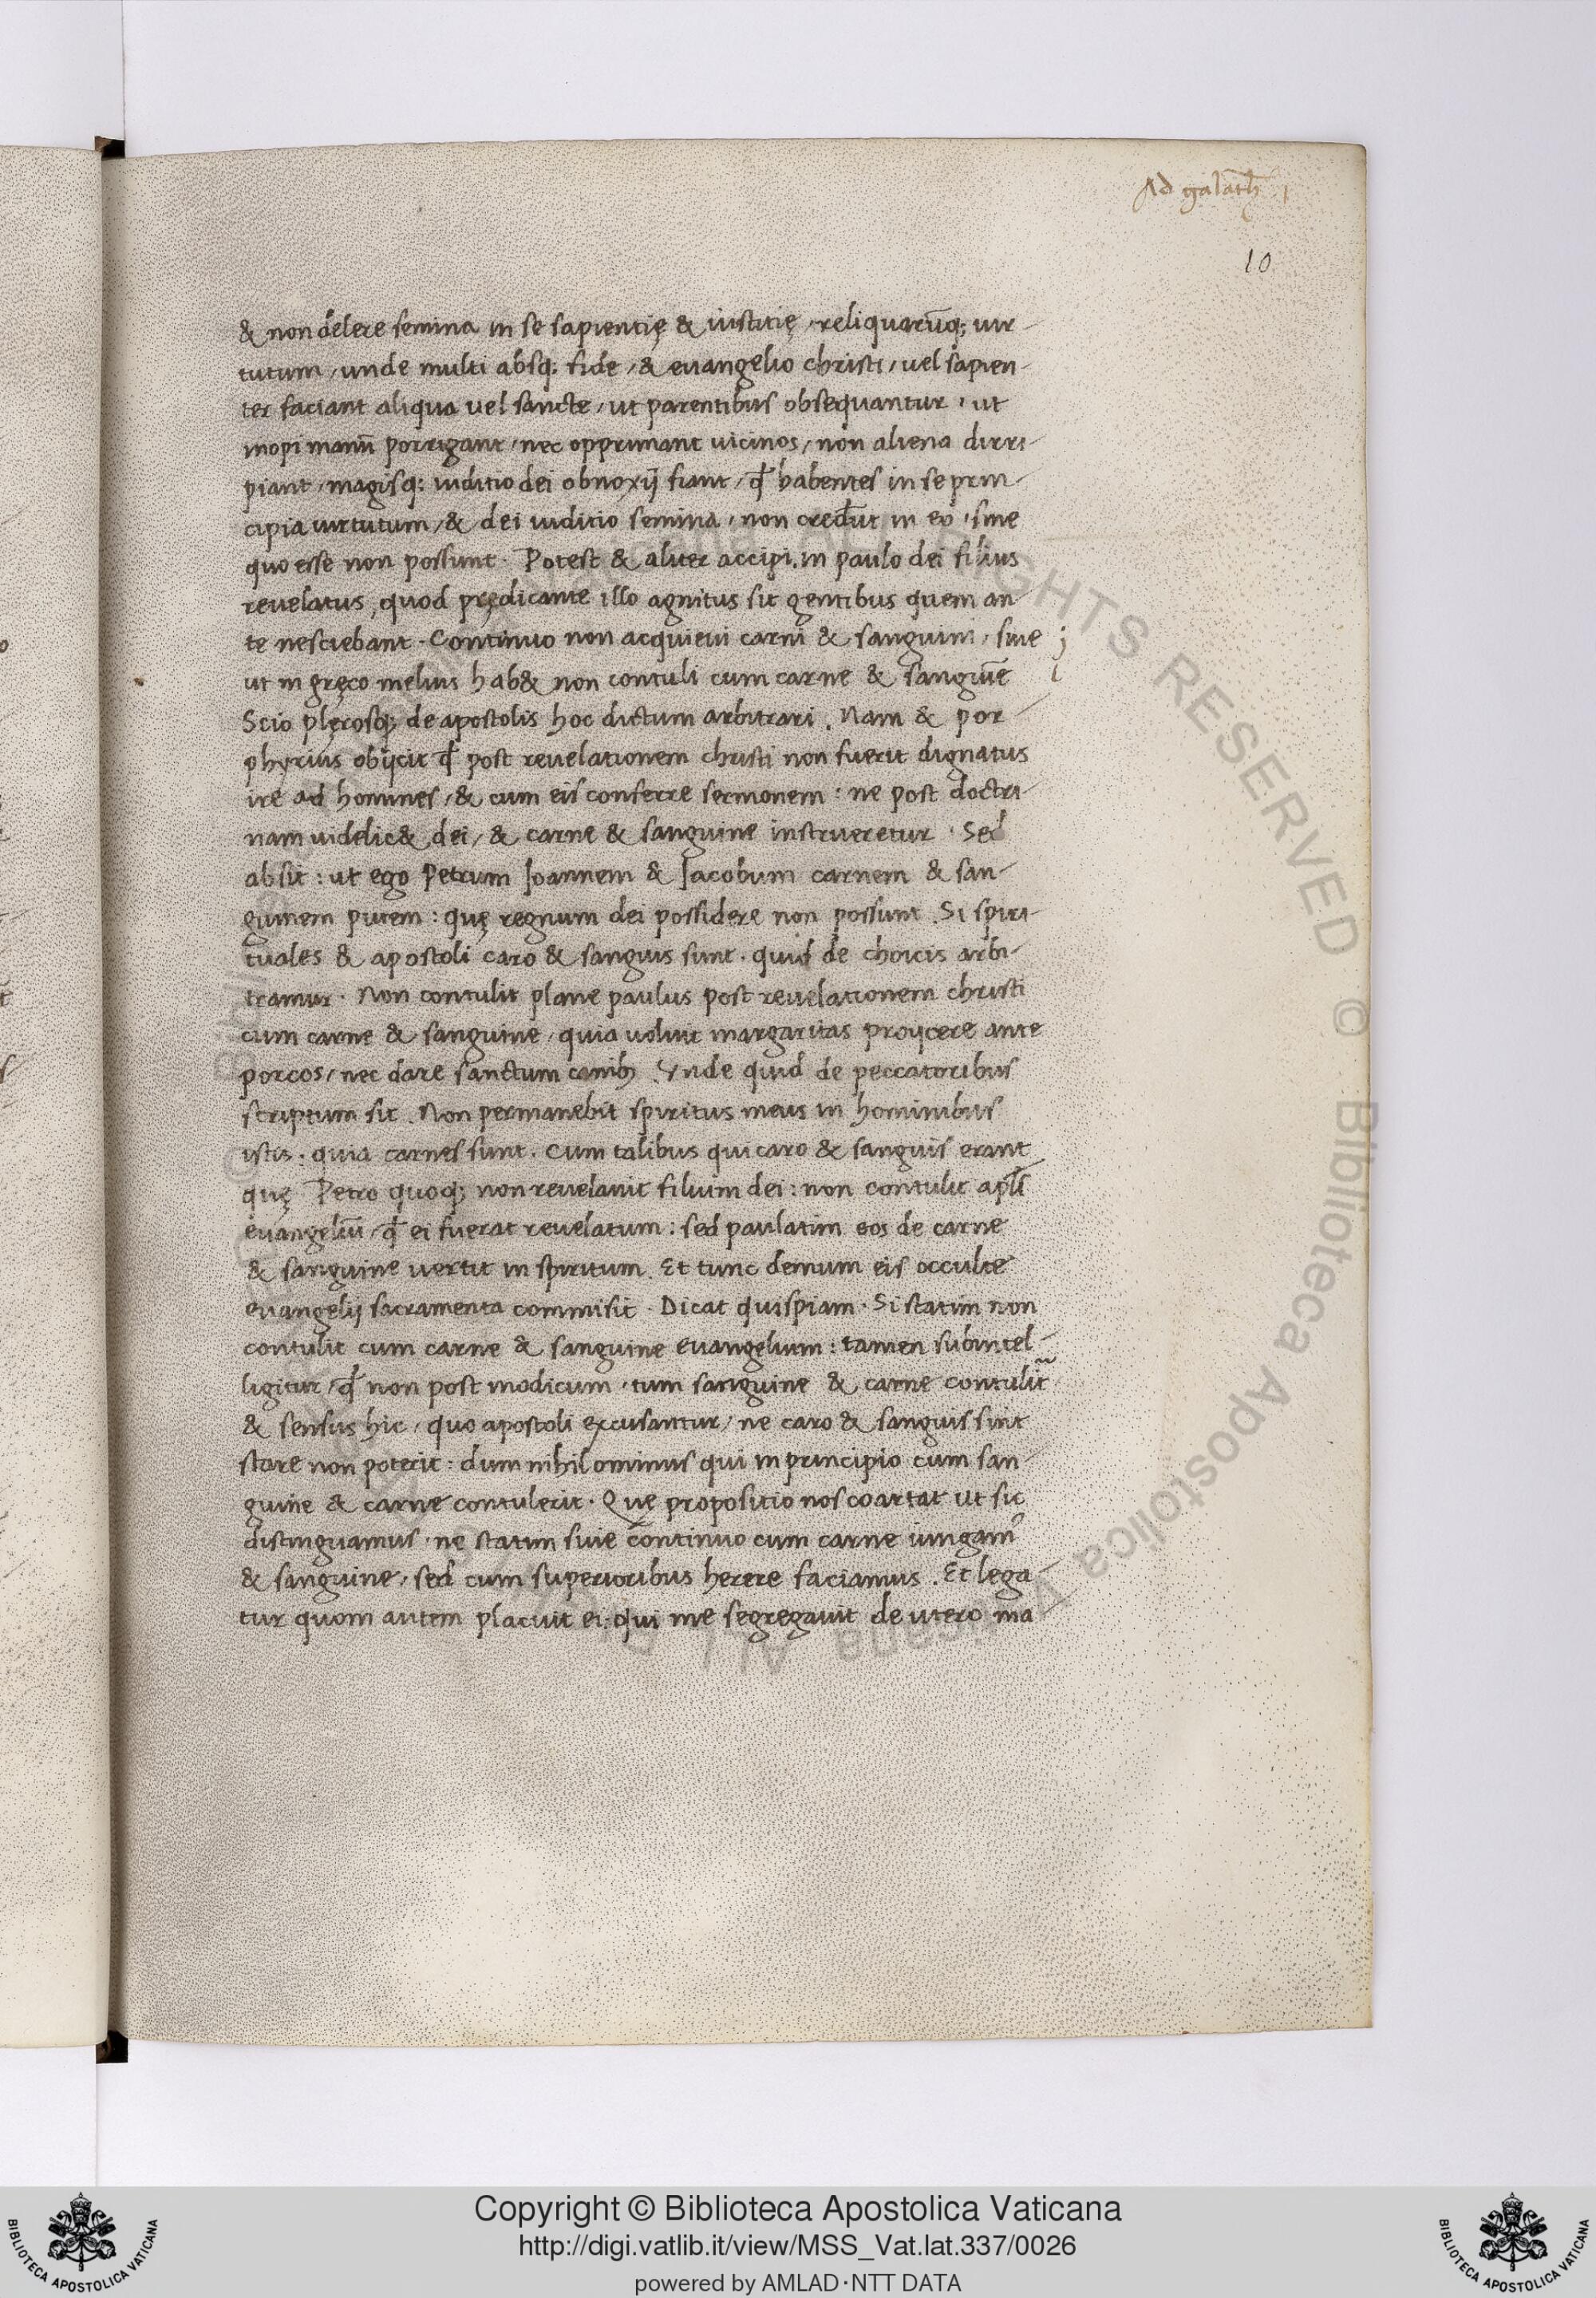 Ad galath̅ 1
10
& non delere semina in se sapientię & iustitię, reliquarūq; uir-
tutum, unde multi absq; fide, & evangelio christi, vel sapien-
ter faciant aliqua vel sancte, ut parentibus obsequantur, ut
inopi manū porrigant, nec opprimant vicinos, non aliena dirri-
piant, magisq; iuditio dei obnoxij fiant, qđ habentes in se prin-
cipia virtutum, & dei iuditio semina, non credūt in eo, sine
quo esse non possunt. Potest & aliter accipi. in paulo dei filius
revelatus, quod prędicante illo agnitus sit gentibus quem an-
te nesciebant. Continuo non acquievi carni & sanguini, sive
ut in gręco melius hab& non contuli cum carne & sanguīe
Scio plęrosq; de apostolis hoc dictum arbitrari. Nam & por-
phyrius obijcit qđ post revelationem christi non fuerit dignatus
ire ad homines, & cum eis conferre sermonem: ne post doctri-
nam videlic& dei, & carne & sanguine instrueretur. Sed
absit: ut ego Petrum Joannem & Jacobum carnem & san-
guinem putem: quę regnum dei possidere non possunt. Si spiri-
tuales & apostoli caro & sanguis sunt. quid de choicis arbi-
tramur. Non contulit plane paulus post revelationem christi
cum carne & sanguine, quia voluit margaritas proijcere ante
porcos, nec dare sanctum canib;. Vnde quid de peccatoribus
scriptum sit. Non permanebit spiritus meus in hominibus
istis: quia carnes sunt. Cum talibus qui caro & sanguis erant
quę Petro quoq; non revelavit filium dei: non contulit apl̅s
evangeliū, qđ ei fuerat revelatum: sed paulatim eos de carne
& sanguine vertit in spiritum. Et tunc demum eis occulte
evangelij sacramenta commisit. Dicat quispiam. Si statim non
contulit cum carne & sanguine evangelium: tamen subintel-
ligitur, qđ non post modicum, tum sanguine & carne contulit
& sensus hic, quo apostoli excusantur, ne caro & sanguis sint
stare non poterit: dum nihil ominus qui in principio cum san-
guine & carne contulerit. Que propositio nos coartat ut sic
distinguamus, ne statim sive continuo cum carne iungam̉
& sanguine, sed cum superioribus herere faciamus. Et lega-
tur quom autem placuit ei: qui me segregavit de utero ma-